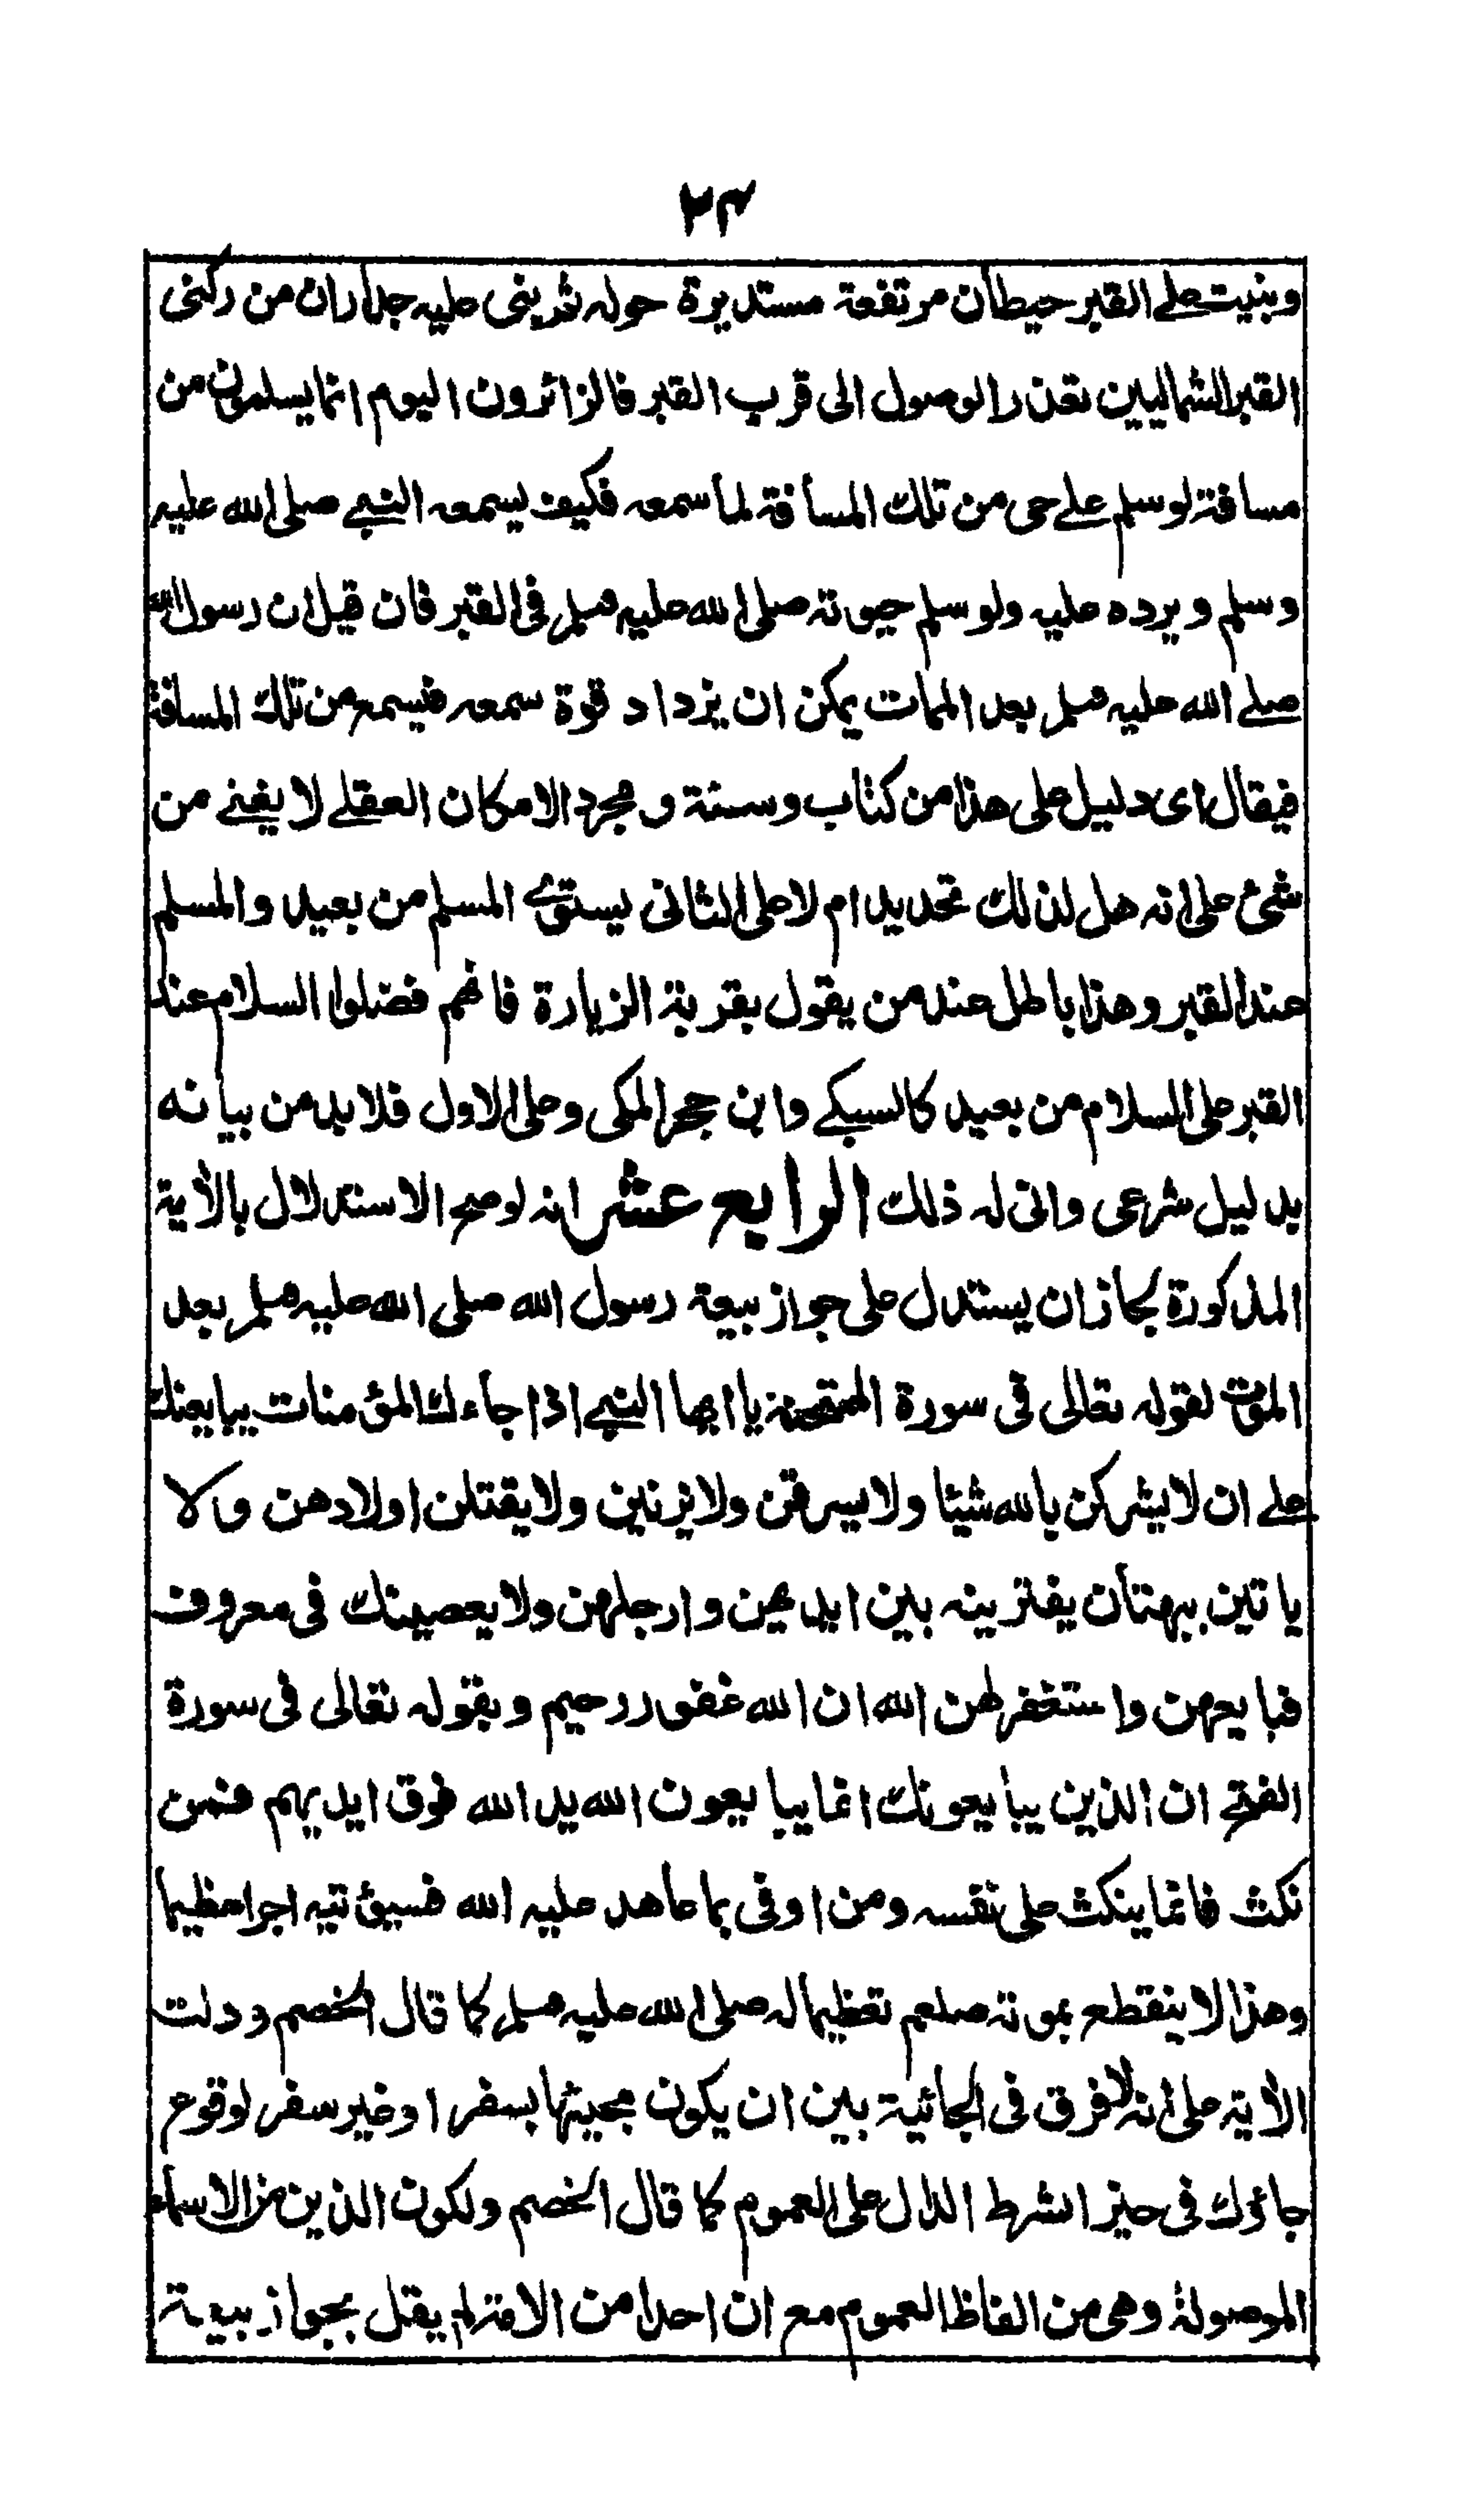 ٢٣
وبنيت على القبر حيطان مرتفعة مستديرة حوله ثم بنى عليه جداران من ركنى
القبر الشماليين تعذر الوصول الى قرب القبر فالزائرون اليوم انما يسلمون من
مسافة لو سلم على حى من تلك المسافة لما سمعه فكيف يسمعه النبي صلى الله عليه
وسلم ويرده عليه ولو سلم حيوته صلى الله عليه وسلم فى القبر فان قيل ان رسول الله
صلى الله عليه وسلم بعد الممات يمكن ان يزداد قوة سمعه فيسمع من تلك المسافة
فيقال اى دليل على هذا من كتاب وسنة ومجرد الامكان العقلى لا يغنى من
شئ على انه هل لذلك تحديد ام لا على الثانى يستوى المسلم من بعيد والمسلم
عند القبر وهذا باطل عند من يقول بقربة الزيارة فانهم فضلوا السلام عند
القبر على السلام من بعيد كالسبكى وابن حجر المكى وعلى الاول فلابد من بيانه
بدليل شرعى وانى له ذلك الرابع عشر انه لو صح الاستدلال بالآية
المذكورة لجاز ان يستدل على جواز بيعة رسول الله صلى الله عليه وسلم بعد
الموت لقوله تعالى فى سورة الممتحنة يا ايها النبي اذا جاءك المؤمنات يبايعنك
على ان لا يشركن بالله شيئا ولا يسرقن ولا يزنين ولا يقتلن اولادهن ولا
ياتين ببهتان يفترينه بين ايديهن وارجلهن ولا يعصينك فى معروف
فبايعهن واستغفر لهن الله ان الله غفور رحيم وبقوله تعالى فى سورة
الفتح ان الذين يبايعونك انما يبايعون الله يد الله فوق ايديهم فمن
نكث فانما ينكث على نفسه ومن اوفى بما عاهد عليه الله فسيؤتيه اجرا عظيما
وهذا لا ينقطع بموته صلعم تعظيما له صلى الله عليه وسلم كما قال الخصم ودلت
الآية على انه لا فرق فى الجائية بين ان يكون مجيئها بسفر او غير سفر لوقوع
جاؤك فى حيز الشرط الدال على العموم كما قال الخصم ولكون الذين من الاسماء
الموصولة وهى من الفاظ العموم مع ان احدا من الامة لم يقل بجواز بيعة